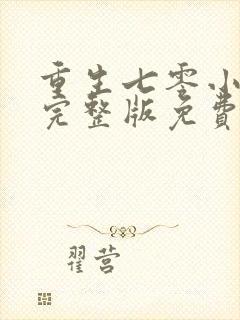 重生七零小
完整版免费
翟营